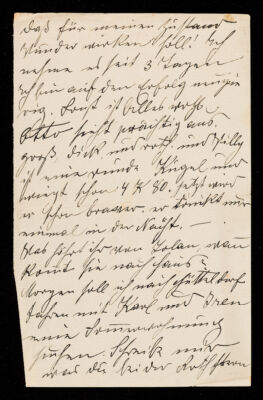 daß für meinen Zustand
Wunder wirken soll! Ich
nehme es seit 3 Tagen
bin auf den Erfolg neugie
rig. Sonst ist Alles wohl.
Otto sieht prächtig aus.
groß, dick und rot. und Willy
ist eine runde Kugel und
wiegt schon 4 K 30. jetzt wird
er schon braver. er trinkt nur
einmal in der Nacht. –
Was hört ihr von Jolan, wann
kommt sie nach haus?
Morgen soll ich nach Hütteldorf
fahren mit Karl und Iren
eine Sommerwohnung
suchen. Schreib mir
was du bei der